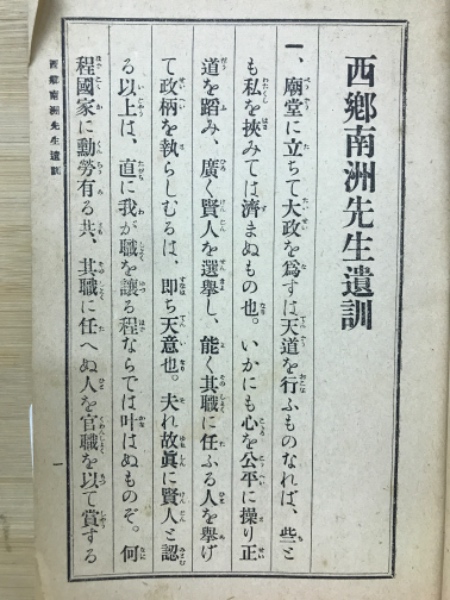 西鄕南洲先生遺訓
一、廟堂に立ちて大政を爲すは天道を行ふものなれば、些と
も私を挾みては濟まぬもの也。いかにも心を公平に操り正
道を蹈み、廣く賢人を選擧し、能く其職に任ふる人を擧げ
て政柄を執らしむるは、卽ち天意也。夫れ故眞に賢人と認
る以上は、直に我が職を讓る程ならでは叶はぬものぞ。何
程國家に勳勞有る共、其職に任へぬ人を官職を以て賞する
西鄕南洲先生遺訓
一